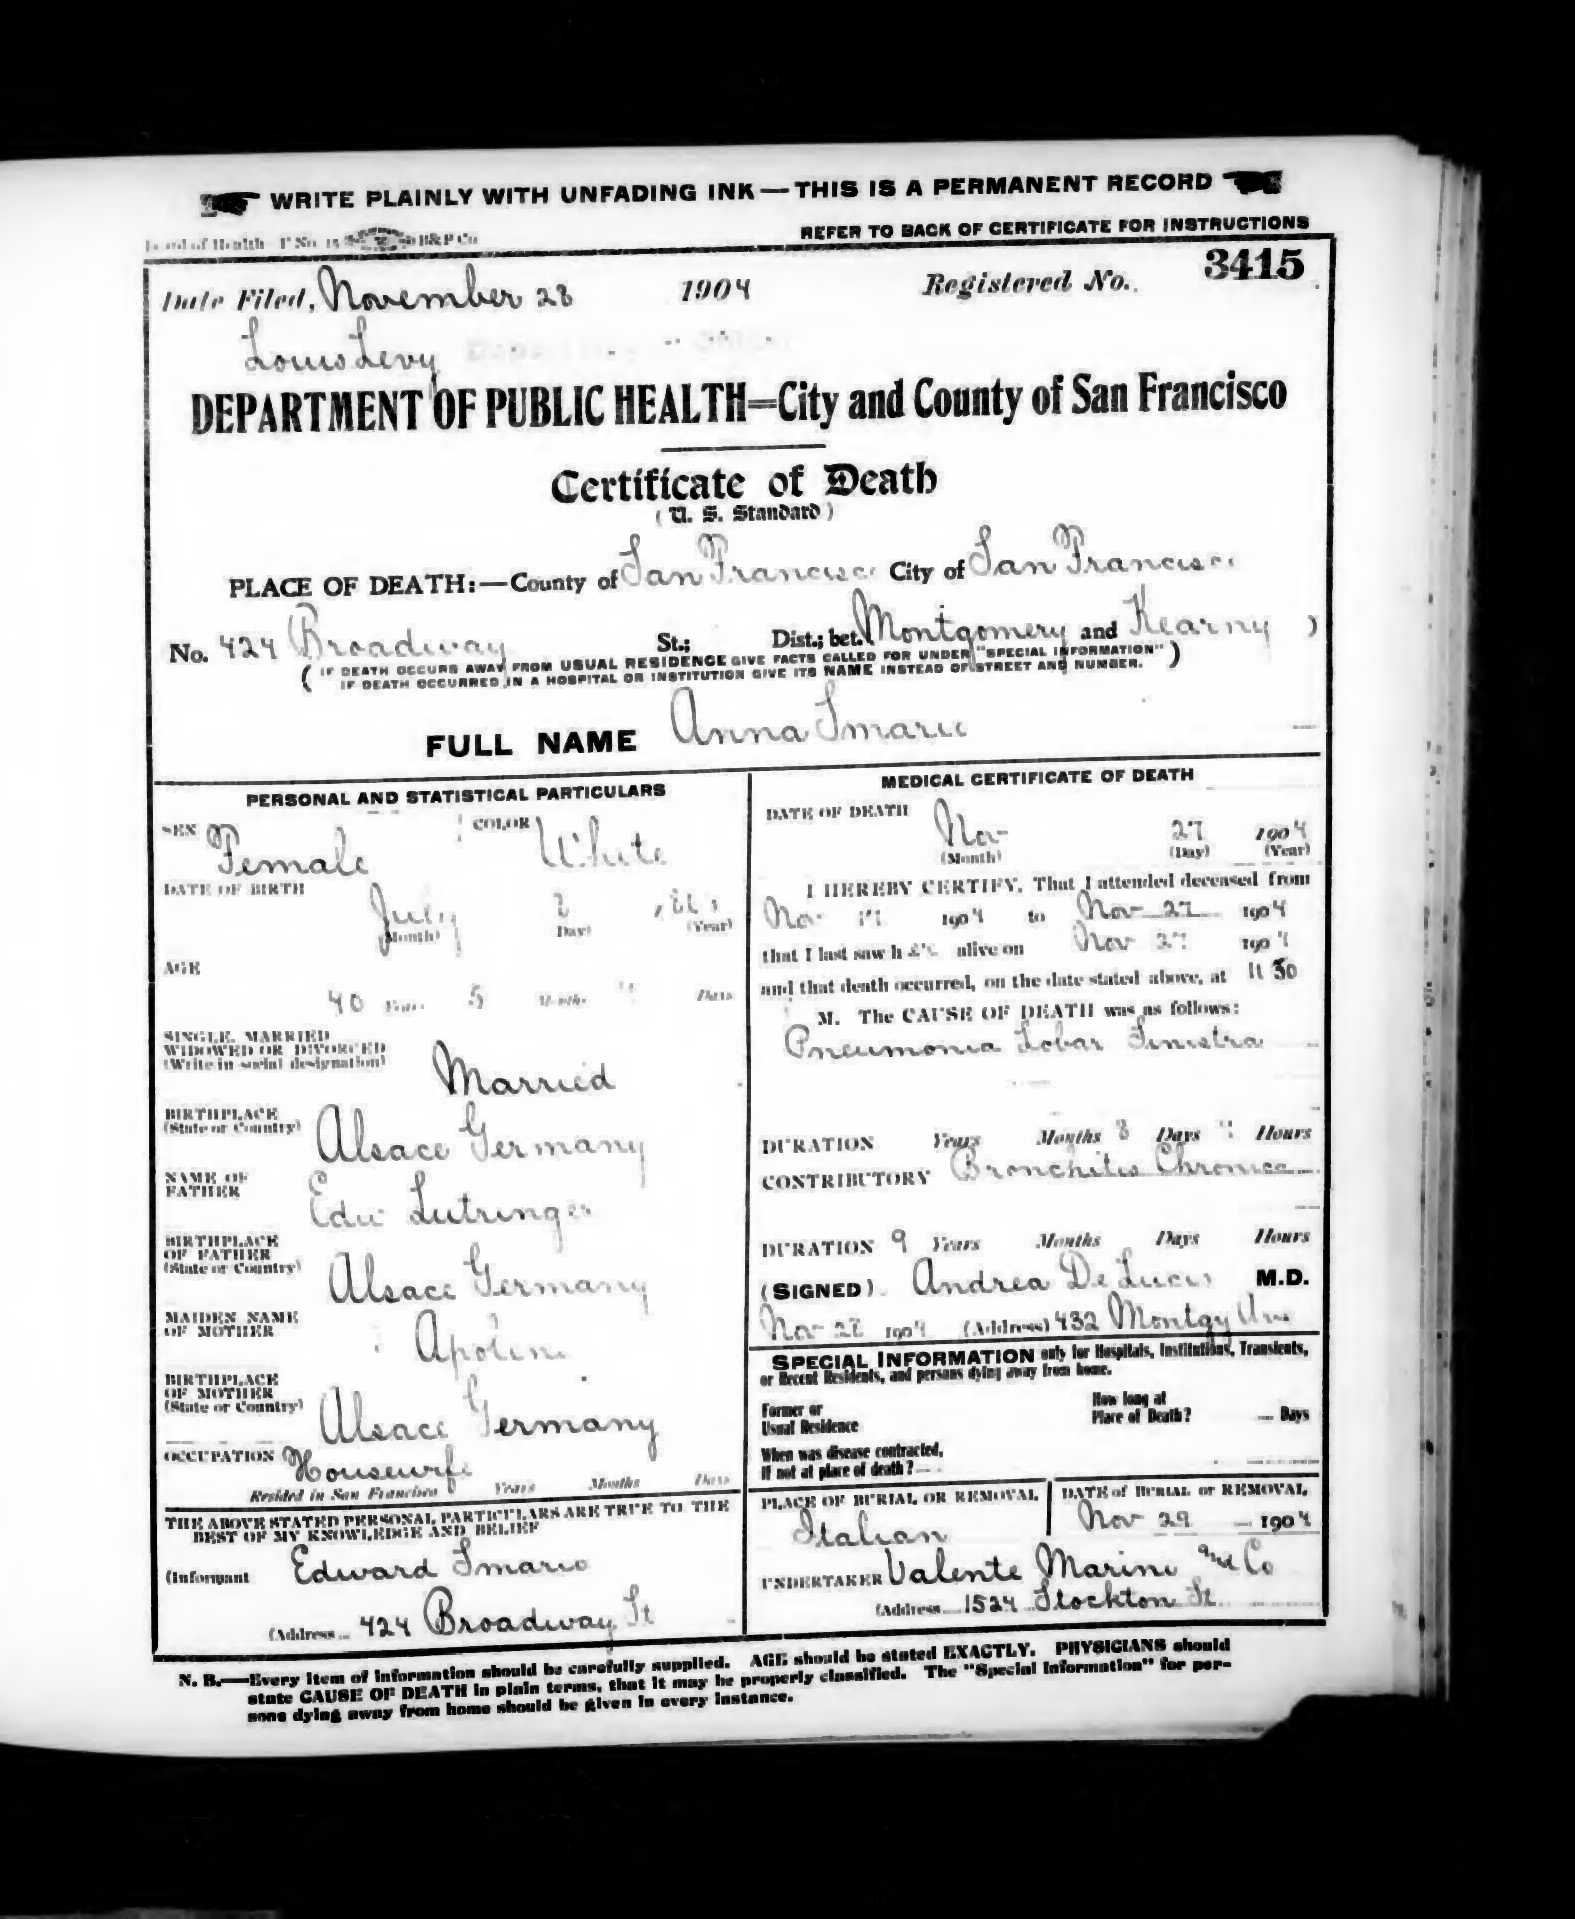 WRITE PLAINLY WITH UNFADING INK—THIS IS A PERMANENT RECORD
Board of Health P No 15 B&P Co
REFER TO BACK OF CERTIFICATE FOR INSTRUCTIONS
Date Filed, November 28 1904 Registered No. 3415
Louis Levy
DEPARTMENT OF PUBLIC HEALTH=City and County of San Francisco
Certificate of Death
(U. S. Standard)
PLACE OF DEATH:—County of San Francisco City of San Francisco
No. 424 Broadway St.; Dist.; bet. Montgomery and Kearny )
( IF DEATH OCCURS AWAY FROM USUAL RESIDENCE GIVE FACTS CALLED FOR UNDER "SPECIAL INFORMATION" )
IF DEATH OCCURRED IN A HOSPITAL OR INSTITUTION GIVE ITS NAME INSTEAD OF STREET AND NUMBER.
FULL NAME Anna Smario
PERSONAL AND STATISTICAL PARTICULARS
SEX Female COLOR White
DATE OF BIRTH
July
(Month) (Day) (Year)
AGE
40 Years 5 Months Days
SINGLE, MARRIED
WIDOWED OR DIVORCED
(Write in social designation) Married
BIRTHPLACE
(State or Country) Alsace Germany
NAME OF
FATHER Edw Lutringer
BIRTHPLACE
OF FATHER
(State or Country) Alsace Germany
MAIDEN NAME
OF MOTHER
BIRTHPLACE
OF MOTHER
(State or Country) Alsace Germany
OCCUPATION Housewife
Resided in San Francisco Years Months Days
THE ABOVE STATED PERSONAL PARTICULARS ARE TRUE TO THE
BEST OF MY KNOWLEDGE AND BELIEF
(Informant Edward Smario
(Address 424 Broadway St
MEDICAL CERTIFICATE OF DEATH
DATE OF DEATH
Nov 27 1904
(Month) (Day) (Year)
I HEREBY CERTIFY, That I attended deceased from
Nov 1904 to Nov 27 1904
that I last saw her alive on Nov 27 1904
and that death occurred, on the date stated above, at 11 30
M. The CAUSE OF DEATH was as follows:
Pneumonia Lobar Sinistra
DURATION Years Months 8 Days Hours
CONTRIBUTORY Bronchitis Chronica
DURATION 9 Years Months Days Hours
(SIGNED) Andrea De Lucis M.D.
Nov 28 1904 (Address) 432 Montgy Ave
SPECIAL INFORMATION only for Hospitals, Institutions, Transients,
or Recent Residents, and persons dying away from home.
Former or
Usual Residence
How long at
Place of Death? Days
When was disease contracted,
If not at place of death?
PLACE OF BURIAL OR REMOVAL
Italian
DATE of BURIAL or REMOVAL
Nov 29 1904
UNDERTAKER Valente Marini and Co
(Address 1524 Stockton St
N. B.—Every item of information should be carefully supplied. AGE should be stated EXACTLY. PHYSICIANS should
state CAUSE OF DEATH in plain terms, that it may be properly classified. The "Special Information" for per-
sons dying away from home should be given in every instance.